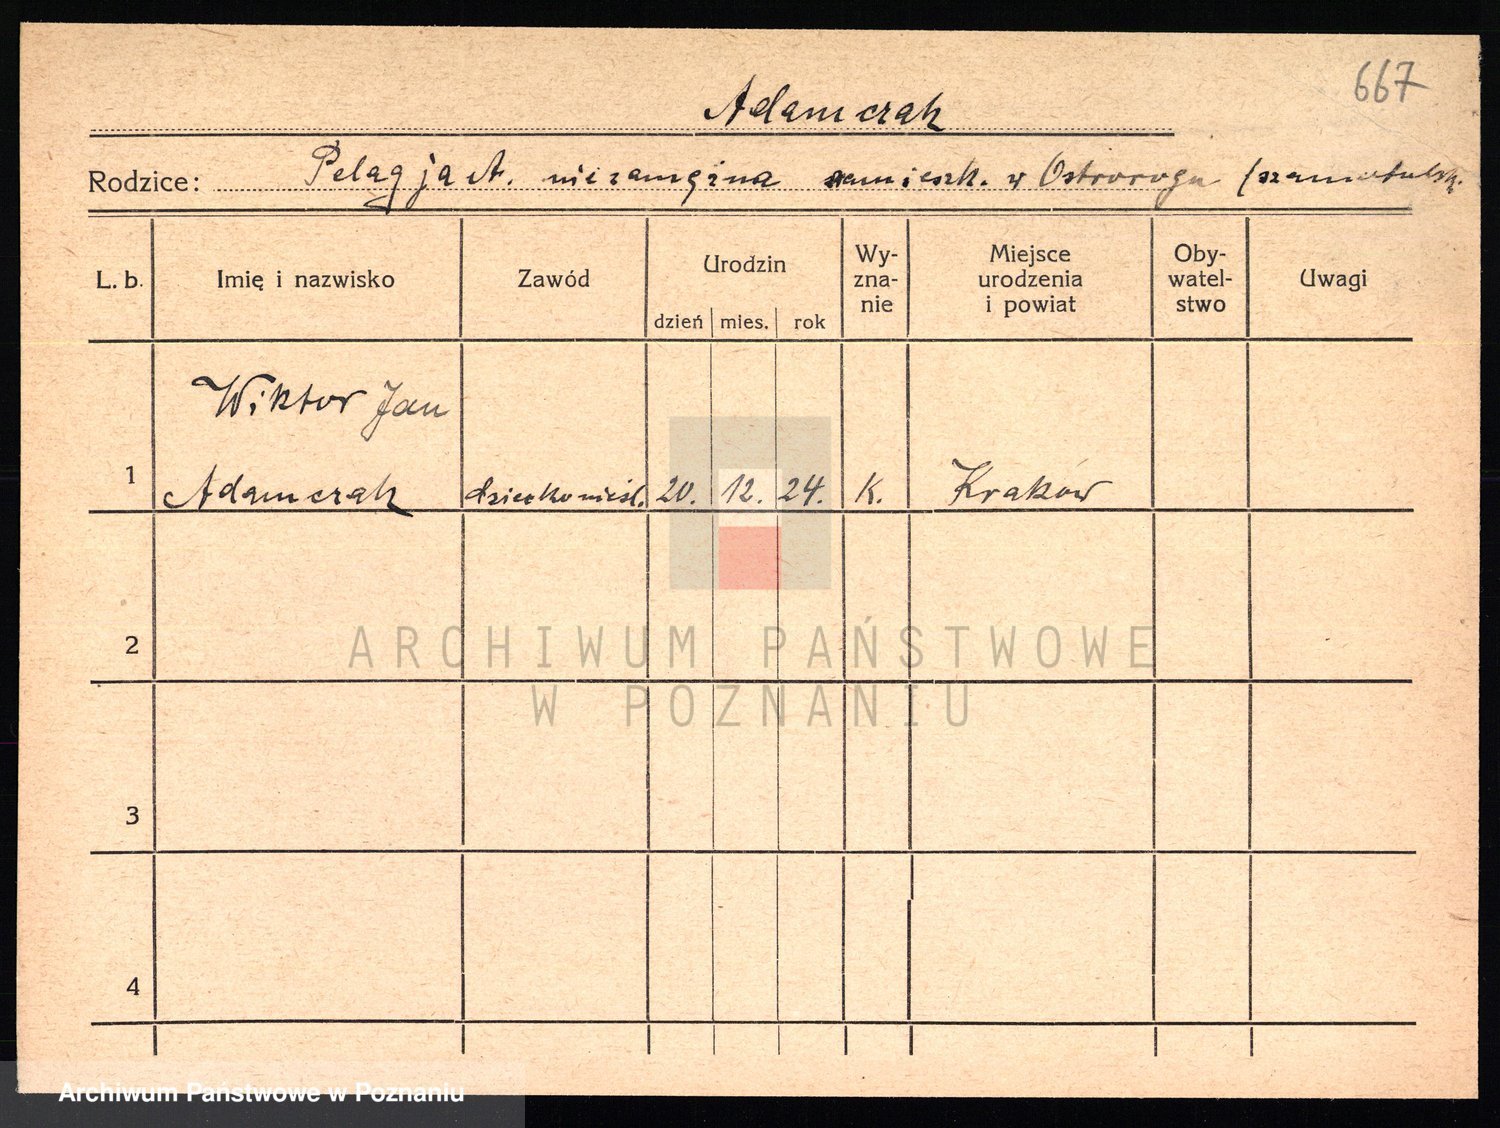 667
Adamczak
Rodzice: Pelagja A. niezamężna zamieszk. w Ostrorogu (szamotulsk.
L. b. Imię i nazwisko Zawód Urodzin dzień mies. rok Wy-
zna-
nie Miejsce
urodzenia
i powiat Oby-
watel-
stwo Uwagi
Wiktor Jan
1 Adamczak dziecko nieśl. 20. 12. 24. K. Kraków
2
ARCHIWUM PAŃSTWOWE
W POZNANIU
3
4
Archiwum Państwowe w Poznaniu